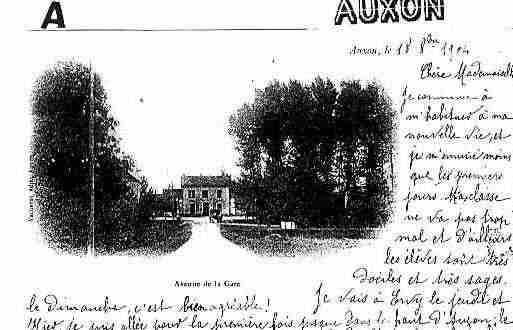 A AUXON
Auxon, le 18 8bre 1904
Chère Mademoiselle
Je commence à
m'habituer à ma
nouvelle vie, et
je m'ennuie moins
que les premiers
jours. Ma classe
ne va pas trop
mal et d'ailleurs
les élèves sont très
dociles et très sages.
Avenue de la Gare
Je vais à Ervy le jeudi et
le dimanche, c'est bien agréable!
Hier je suis allée pour la première fois jusque dans le haut d'Auxon, le